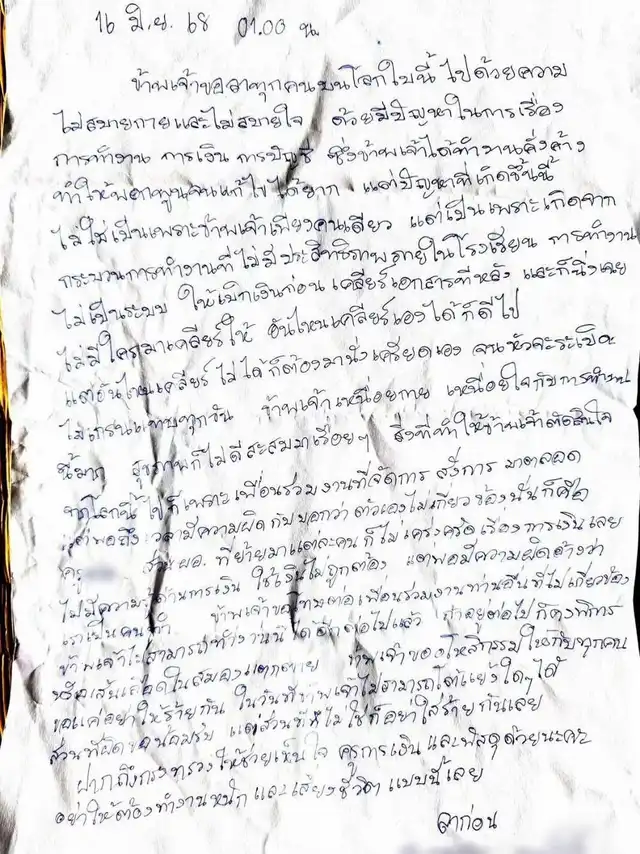 16 มิ.ย. 68 01.00 น.
ข้าพเจ้าขอลาทุกคนบนโลกใบนี้ ไปด้วยความ
ไม่สบายกายและไม่สบายใจ ด้วยมีปัญหาในการเรื่อง
การทำงาน การเงิน การบัญชี ซึ่งข้าพเจ้าได้ทำงานคั่งค้าง
ทำให้พอกพูนจนแก้ไขได้ยาก แต่ปัญหาที่เกิดขึ้นนี้
ไม่ใช่เป็นเพราะข้าพเจ้าเพียงคนเดียว แต่เป็นเพราะเกิดจาก
กระบวนการทำงานที่ไม่มีประสิทธิภาพภายในโรงเรียน การทำงาน
ไม่เป็นระบบ ให้เบิกเงินก่อน เคลียร์เอกสารทีหลัง และก็นิ่งเฉย
ไม่มีใครมาเคลียร์ให้ อันไหนเคลียร์เองได้ก็ดีไป
แต่อันไหนเคลียร์ไม่ได้ก็ต้องมานั่งเครียดเอง จนหัวจะระเบิด
ไมเกรนแทบทุกวัน ข้าพเจ้าเหนื่อยกาย เหนื่อยใจกับการทำงาน
นี้มาก สุขภาพก็ไม่ดีสะสมมาเรื่อยๆ สิ่งที่ทำให้ข้าพเจ้าตัดสินใจ
จากโลกนี้ไปก็เพราะเพื่อนร่วมงานที่จัดการ สั่งการ มาตลอด
แต่พอถึงเวลามีความผิดกับบอกว่าตัวเองไม่เกี่ยวข้องนั้นก็คือ
ครู ส่วนผอ. ที่ย้ายมาแต่ละคน ก็ไม่เคร่งครัดเรื่องการเงินเลย
ไม่มีความรู้ด้านการเงิน ใช้เงินไม่ถูกต้อง แต่พอมีความผิดอ้างว่า
เราเป็นคนทำ ข้าพเจ้าขอโทษต่อเพื่อนร่วมงานท่านอื่นที่ไม่เกี่ยวข้อง
ข้าพเจ้าไม่สามารถทำงานนี้ได้อีกต่อไปแล้ว ถ้าอยู่ต่อไปก็คงพิการ
หรือเส้นเลือดในสมองแตกตาย ข้าพเจ้าขออโหสิกรรมให้กับทุกคน
ขอแค่อย่าให้ร้ายกัน ในวันที่ข้าพเจ้าไม่สามารถโต้แย้งใดๆ ได้
ส่วนที่ผิดขอน้อมรับ แต่ส่วนที่ไม่ใช่ก็อย่าใส่ร้ายกันเลย
ฝากถึงกระทรวงให้ช่วยเห็นใจ ครูการเงิน และพัสดุด้วยนะคะ
อย่าให้ต้องทำงานหนัก และเสี่ยงชีวิต แบบนี้เลย
ลาก่อน